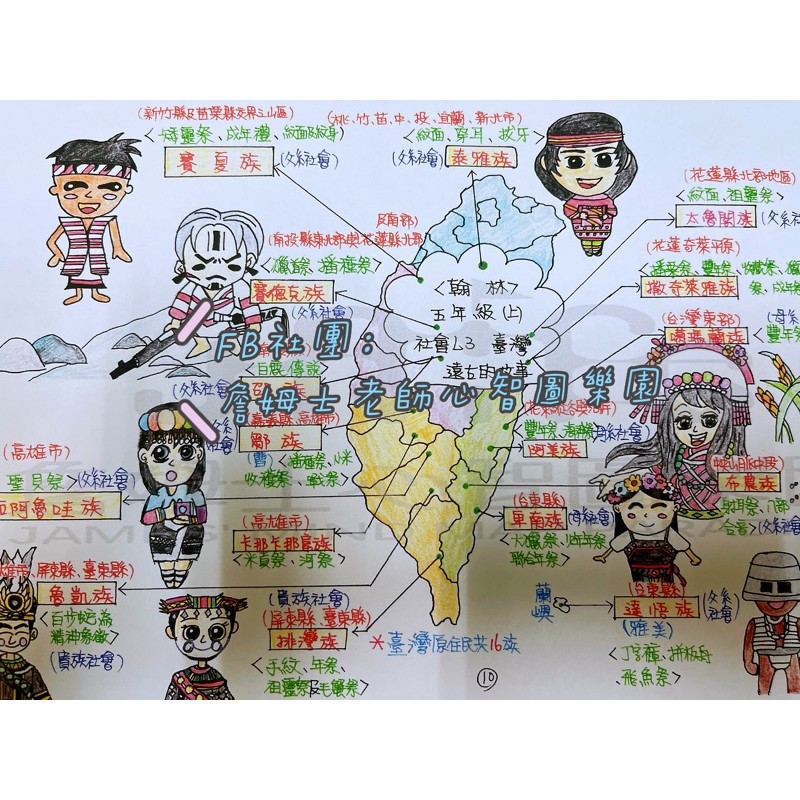 (新竹縣及苗栗縣交界之山區)
<矮靈祭、成年禮、紋面及紋身>
賽夏族 (父系社會)
(桃、竹、苗、中、投、宜蘭、新北市)
<紋面、穿耳、拔牙>
(父系社會) 泰雅族
(花蓮縣北部地區)
<紋面、祖靈祭>
太魯閣族 (父系社
及南部)
(南投縣東北部與花蓮縣北部
<獵首祭、播種祭>
賽德克族
(父系社會)
(花蓮奇萊平原
撒奇萊雅族
(台灣東部)
噶瑪蘭族
(母系
豐年
<翰林>
五年級(上)
社會L3 臺灣
遠古的故事
FB社團：
詹姆士老師心智圖樂園
白鹿傳說
(父系社會)
(嘉義縣、高雄市)
鄒族
(曹)
<播種祭、小米
收穫祭、戰祭>
豐年祭、海祭 母系社會
阿美族
中央山脈中段
布農族
射耳祭、八部
合音> (父系社會
(高雄市)
聖貝祭> (父系社會)
阿魯哇族
(高雄市)
卡那卡那富族
<米貢祭、河祭>
(台東縣)
卑南族 (母系社會)
<大獵祭、少年祭
聯合年祭>
雄市、屏東縣、臺東縣)
魯凱族
<百步蛇為
精神象徵>
(貴族社會)
(貴族社會)
(屏東縣、臺東縣)
排灣族
<手紋、年祭、
祖靈祭及毛蟹祭>
*臺灣原住民共16族
10
蘭嶼
(台東縣)
達悟族 (父系社會)
(雅美)
<丁字褲、拼板舟
、飛魚祭>